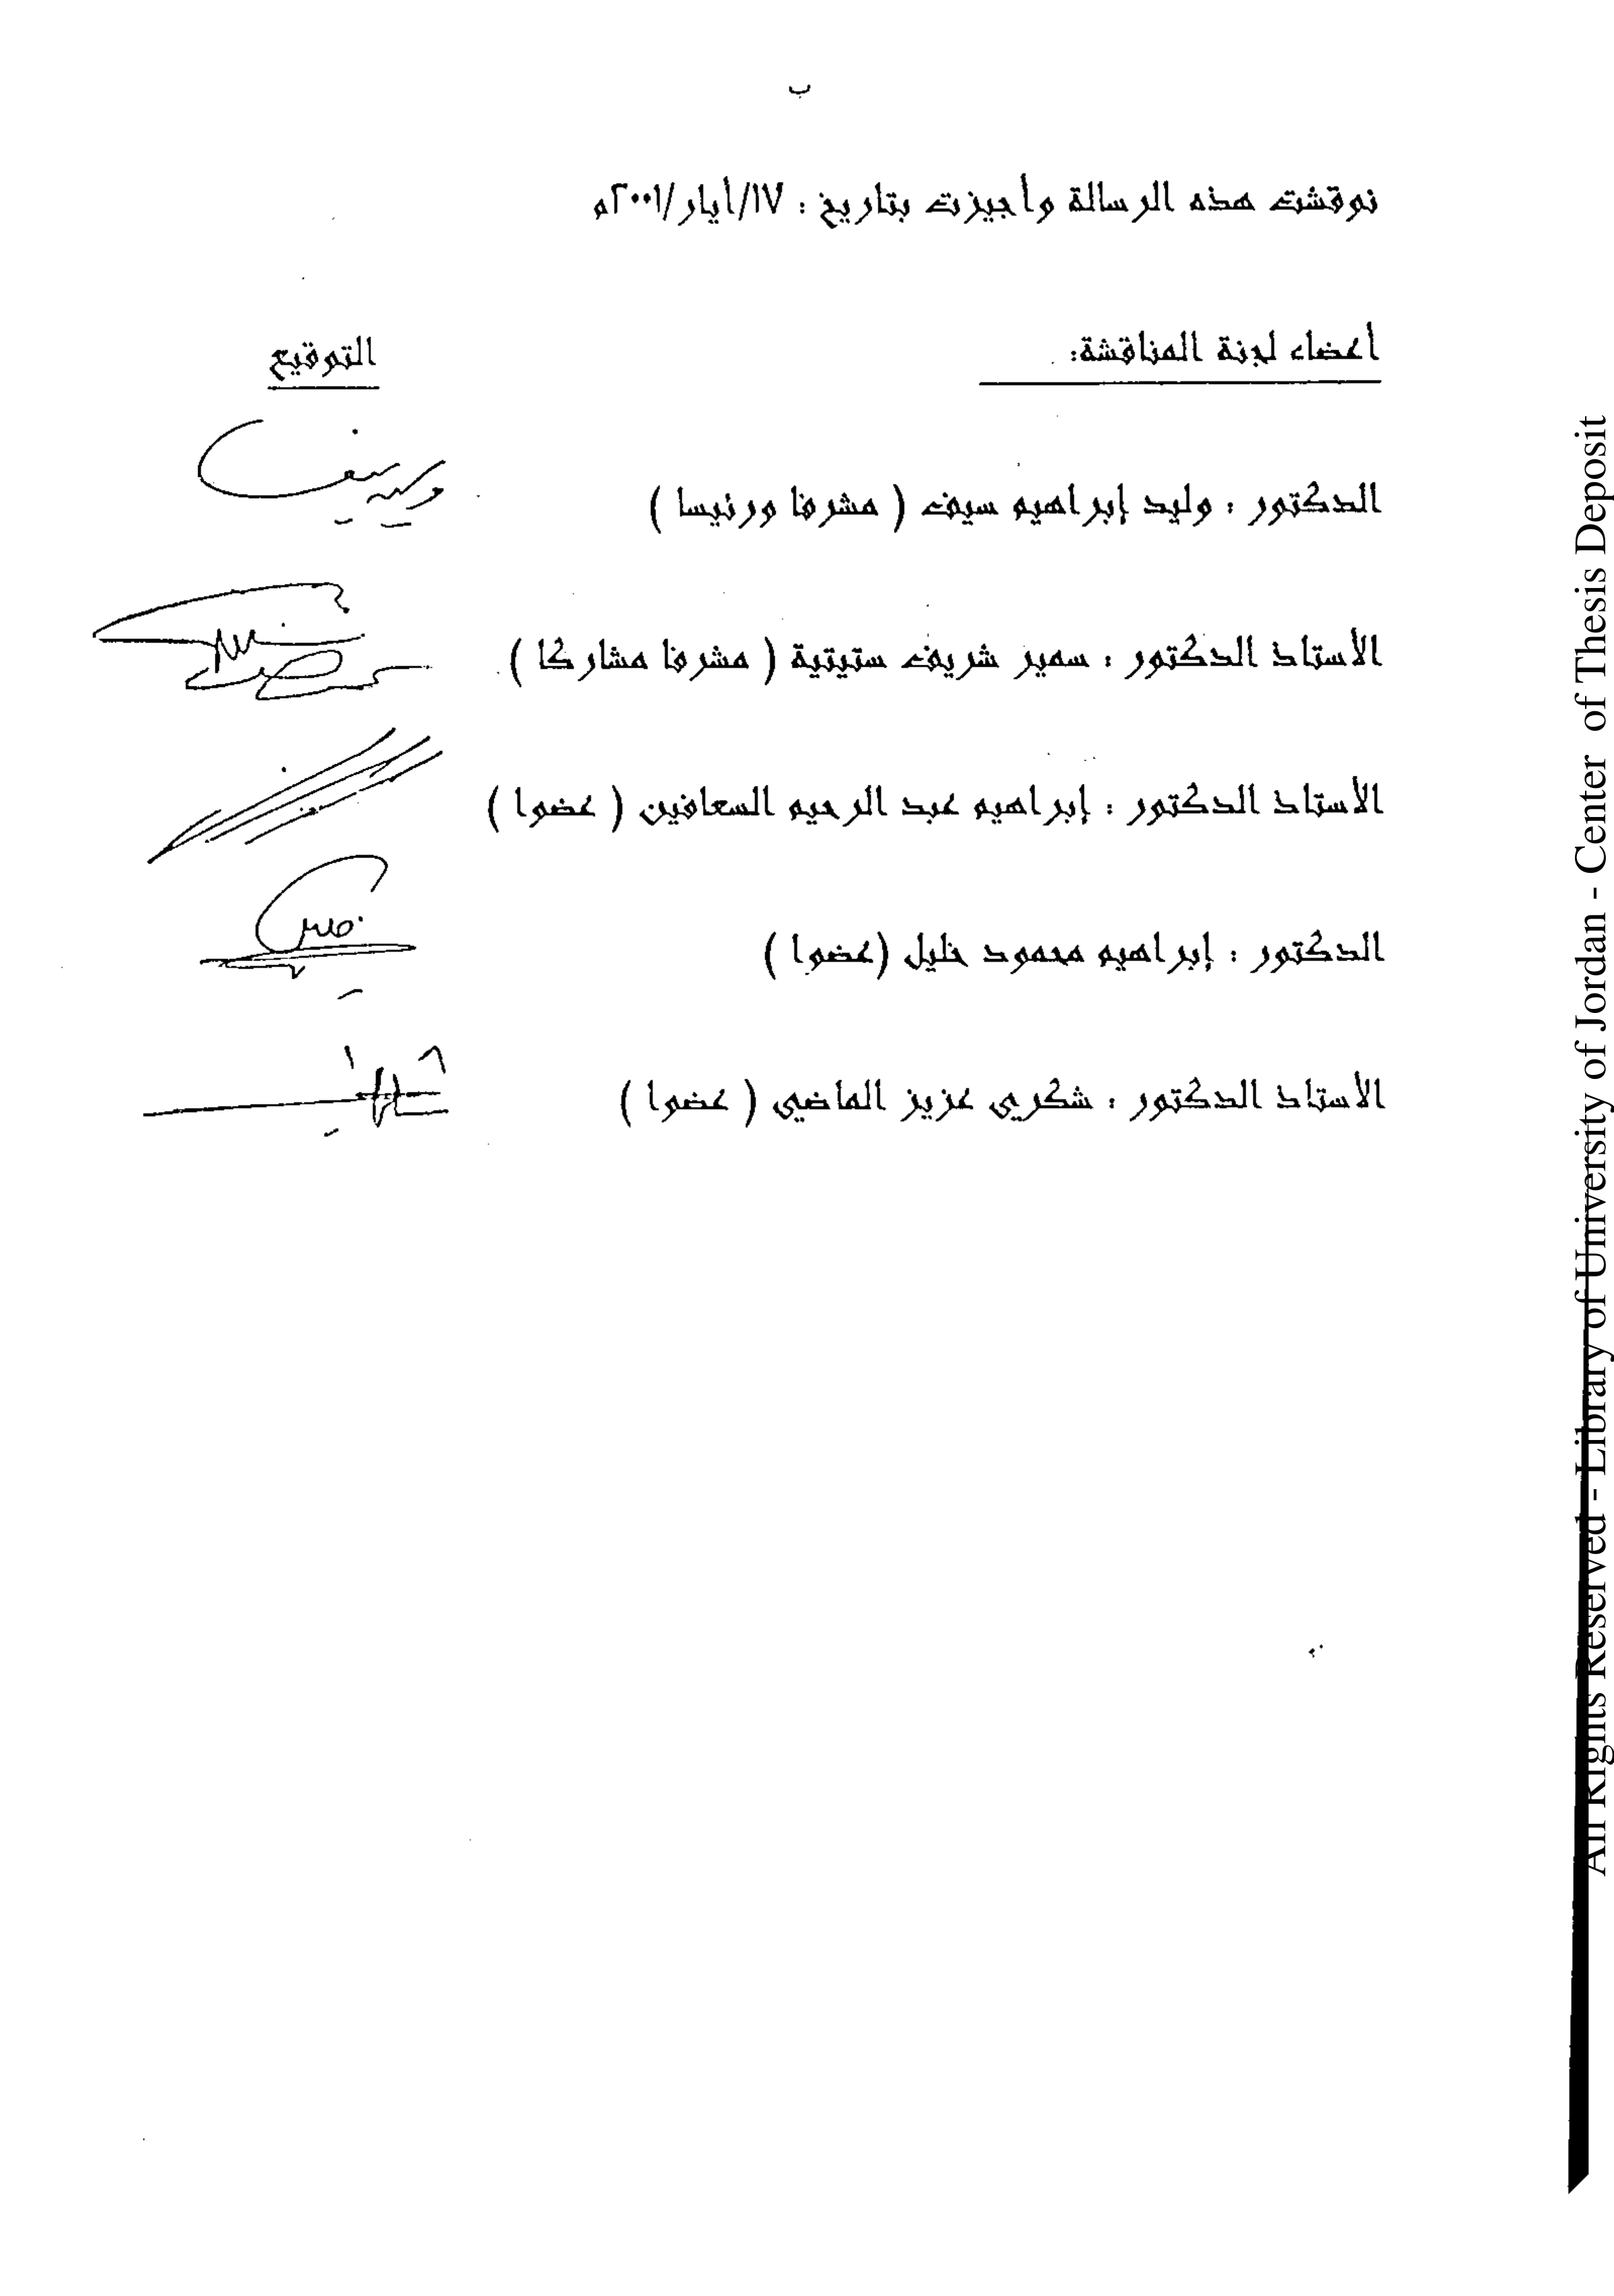 ب
نوقشت هذه الرسالة وأجيزت بتاريخ : ١٧/أيار/٢٠٠١م
أعضاء لجنة المناقشة: التوقيع
الدكتور : وليد إبراهيم سيف ( مشرفا ورئيسا )
الأستاذ الدكتور : سمير شريف ستيتية ( مشرفا مشاركا )
الأستاذ الدكتور : إبراهيم عبد الرحيم السعافين ( عضوا )
الدكتور : إبراهيم محمود خليل (عضوا )
الأستاذ الدكتور : شكري عزيز الماضي ( عضوا )
All Rights Reserved - Library of University of Jordan - Center of Thesis Deposit